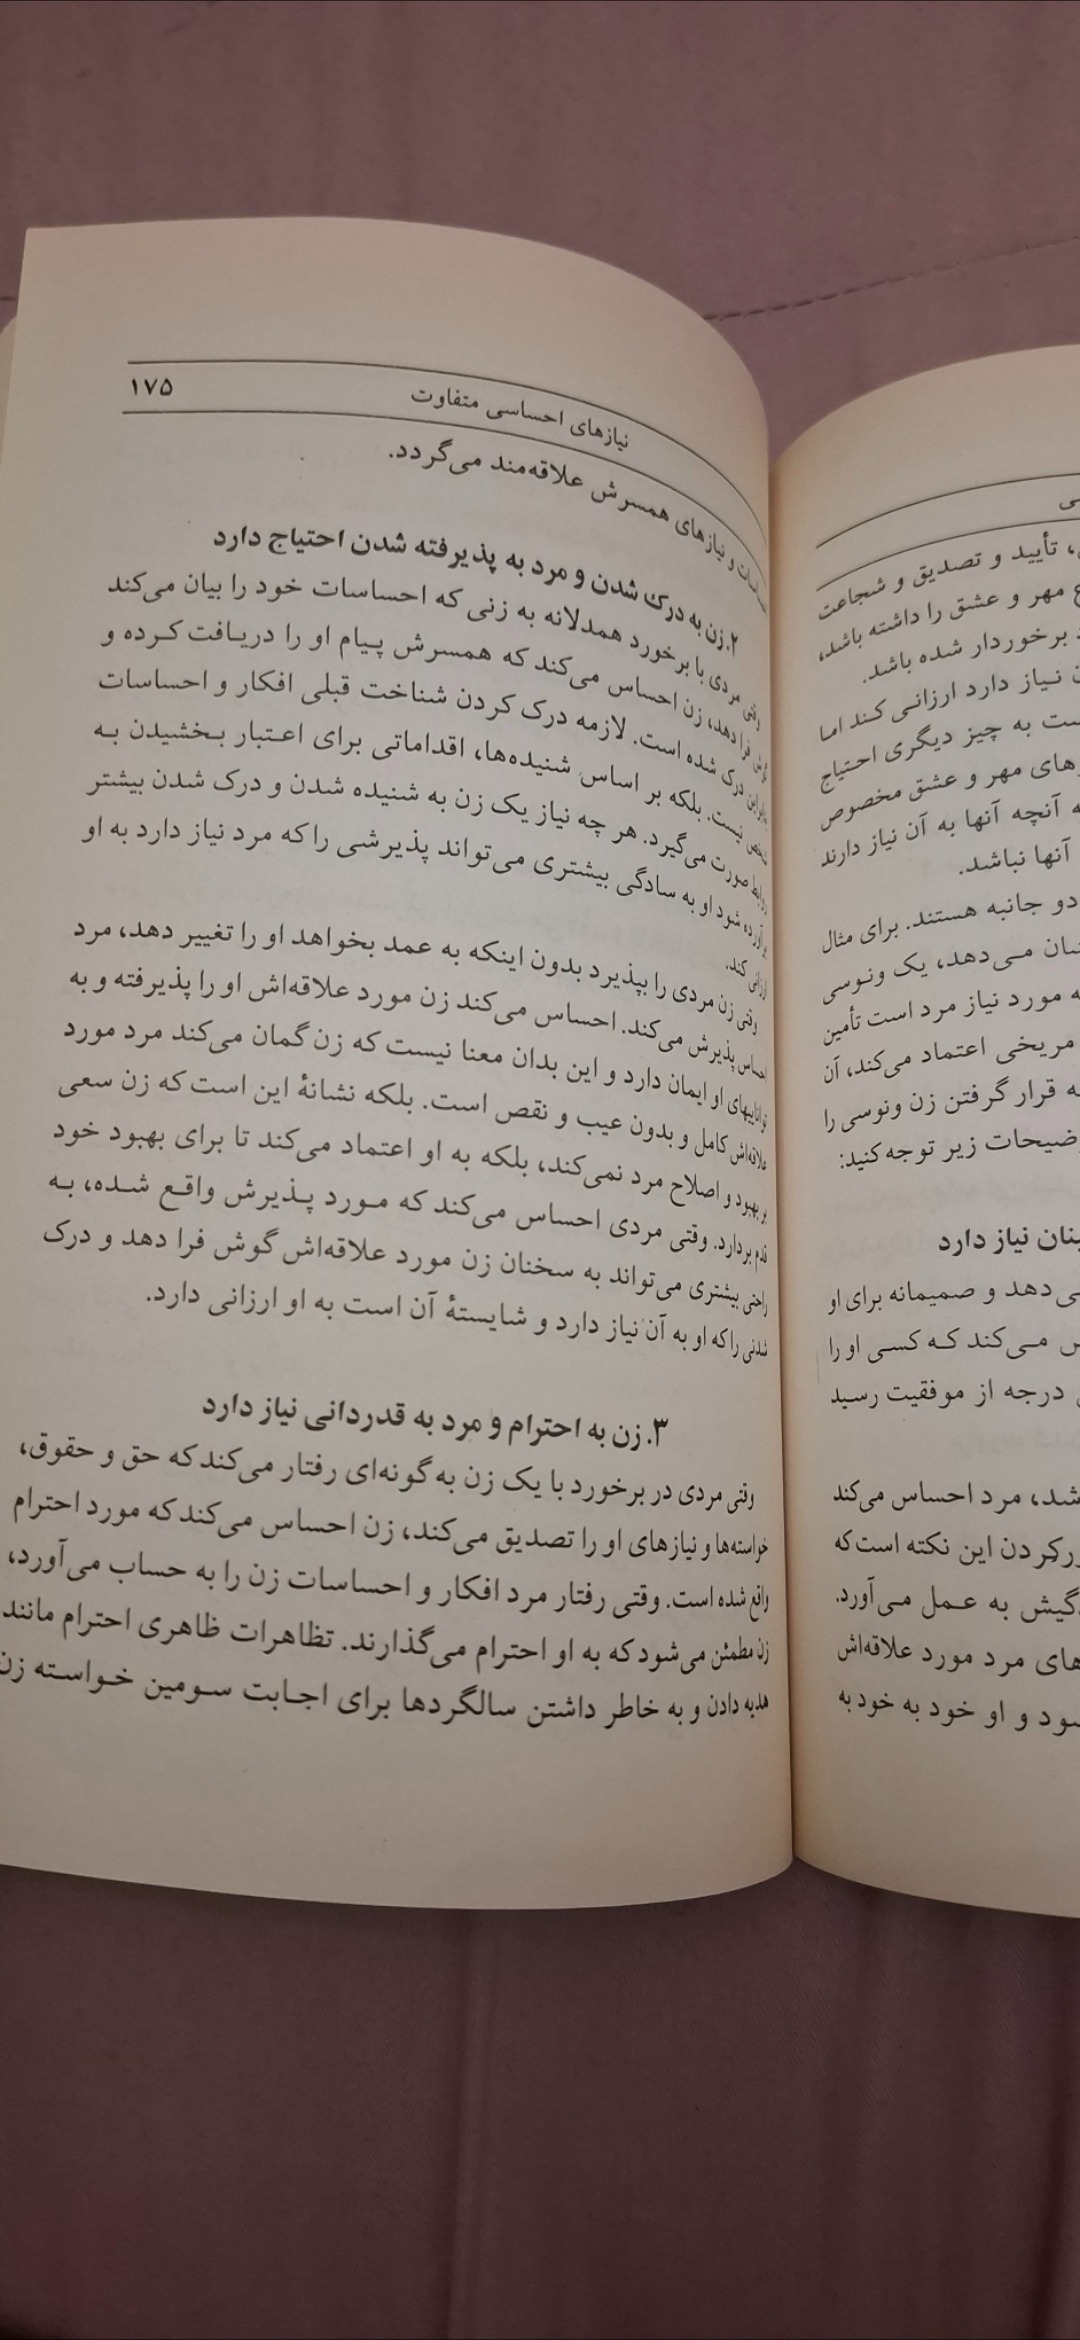 نیازهای احساسی متفاوت
۱۷۵
و نیازهای همسرش علاقه‌مند می‌گردد.
۲. زن به درک شدن و مرد به پذیرفته شدن احتیاج دارد
وقتی مردی با برخورد همدلانه به زنی که احساسات خود را بیان می‌کند
فرا دهد، زن احساس می‌کند که همسرش پیام او را دریافت کرده و
درک شده است. لازمه درک کردن شناخت قبلی افکار و احساسات
نیست. بلکه بر اساس شنیده‌ها، اقداماتی برای اعتبار بخشیدن به
صورت می‌گیرد. هر چه نیاز یک زن به شنیده شدن و درک شدن بیشتر
برآورده شود او به سادگی بیشتری می‌تواند پذیرشی را که مرد نیاز دارد به او
ارزانی کند.
وقتی زن مردی را بپذیرد بدون اینکه به عمد بخواهد او را تغییر دهد، مرد
احساس پذیرش می‌کند. احساس می‌کند زن مورد علاقه‌اش او را پذیرفته و به
تواناییهای او ایمان دارد و این بدان معنا نیست که زن گمان می‌کند مرد مورد
علاقه‌اش کامل و بدون عیب و نقص است. بلکه نشانهٔ این است که زن سعی
بر بهبود و اصلاح مرد نمی‌کند، بلکه به او اعتماد می‌کند تا برای بهبود خود
قدم بردارد. وقتی مردی احساس می‌کند که مورد پذیرش واقع شده، به
راحتی بیشتری می‌تواند به سخنان زن مورد علاقه‌اش گوش فرا دهد و درک
شدنی را که او به آن نیاز دارد و شایستهٔ آن است به او ارزانی دارد.
۳. زن به احترام و مرد به قدردانی نیاز دارد
وقتی مردی در برخورد با یک زن به گونه‌ای رفتار می‌کند که حق و حقوق،
خواسته‌ها و نیازهای او را تصدیق می‌کند، زن احساس می‌کند که مورد احترام
واقع شده است. وقتی رفتار مرد افکار و احساسات زن را به حساب می‌آورد،
زن مطمئن می‌شود که به او احترام می‌گذارند. تظاهرات ظاهری احترام مانند
هدیه دادن و به خاطر داشتن سالگردها برای اجابت سومین خواسته زن
تأیید و تصدیق و شجاعت
مهر و عشق را داشته باشد،
برخوردار شده باشد.
نیاز دارد ارزانی کند اما
به چیز دیگری احتیاج
مهر و عشق مخصوص
آنچه آنها به آن نیاز دارند
آنها نباشد.
دو جانبه هستند. برای مثال
می‌دهد، یک ونوسی
مورد نیاز مرد است تأمین
مریخی اعتماد می‌کند، آن
قرار گرفتن زن ونوسی را
زیر توجه کنید:
نیاز دارد
دهد و صمیمانه برای او
می‌کند که کسی او را
درجه از موفقیت رسید
مرد احساس می‌کند
کردن این نکته است که
به عمل می‌آورد.
مرد مورد علاقه‌اش
و او خود به خود به